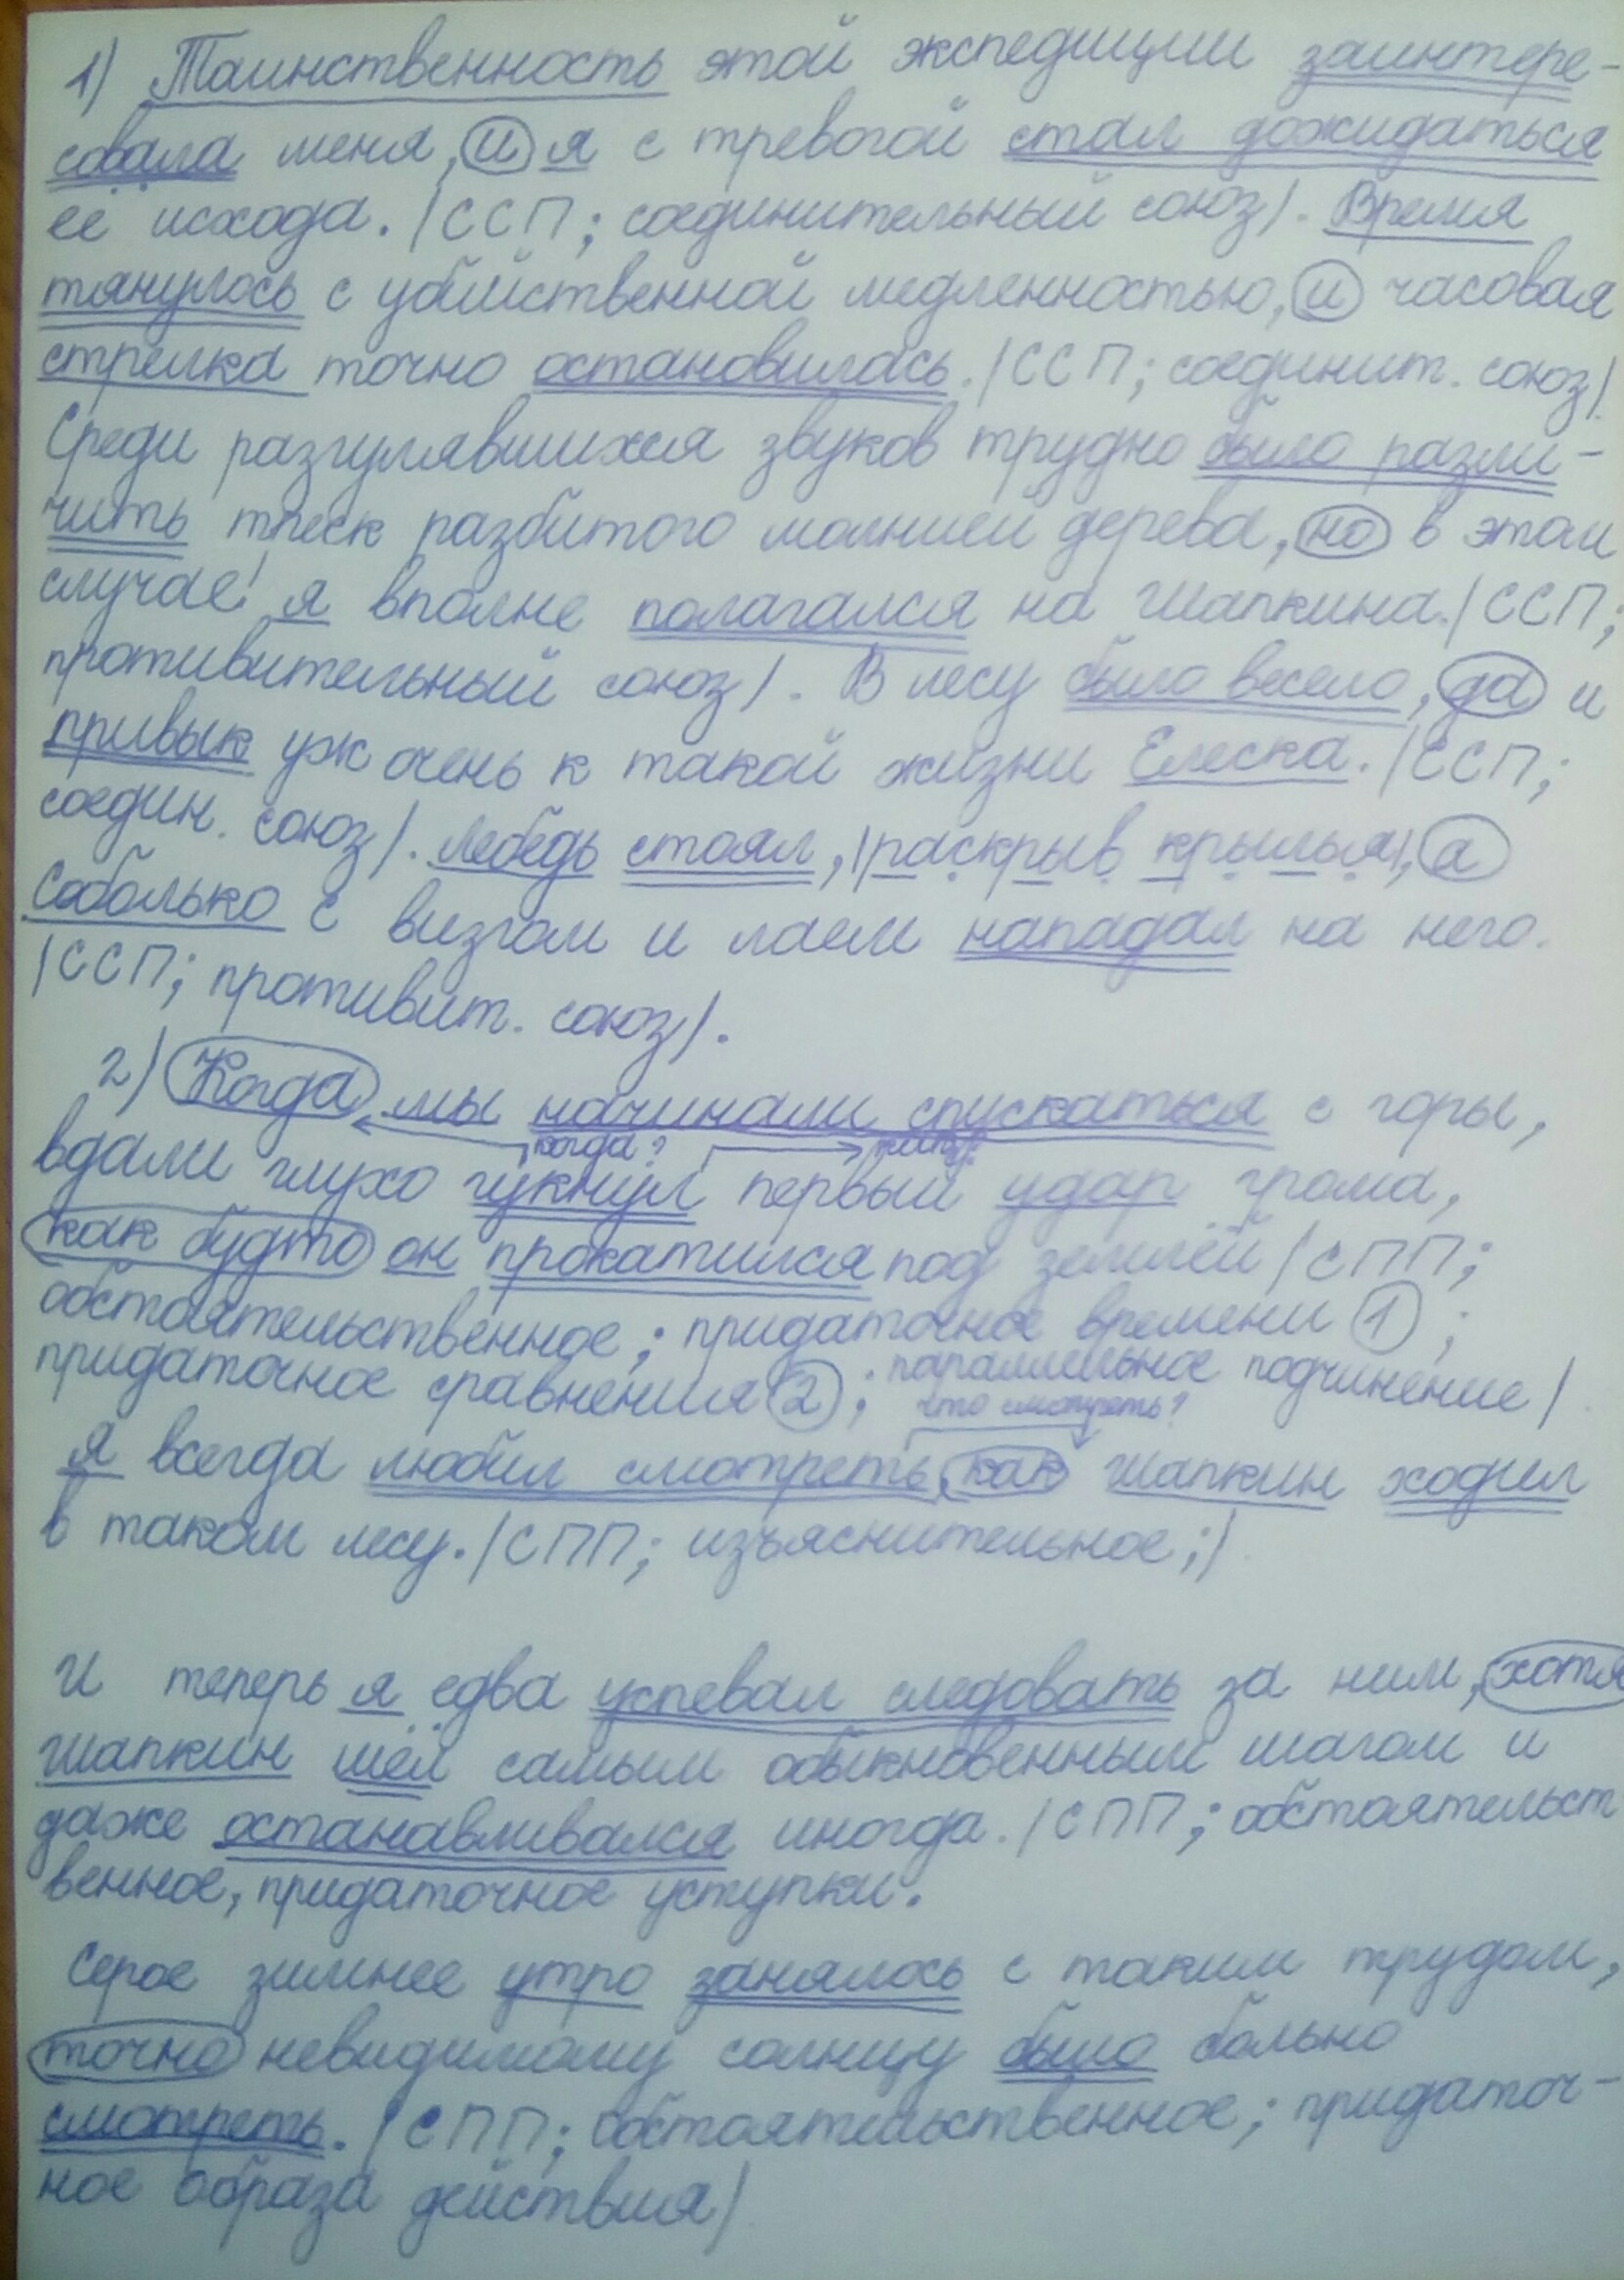 1) Таинственность этой экспедиции заинтере-
совала меня, и я с тревогой стал дожидаться
её исхода. (ССП; соединительный союз). Время
тянулось с убийственной медленностью, и часовая
стрелка точно остановилась. (ССП; соединит. союз).
Среди разгулявшихся звуков трудно было разли-
чить треск разбитого молнией дерева, но в этом
случае я вполне полагался на Шапкина. (ССП;
противительный союз). В лесу было весело, да и
привык уж очень к такой жизни Елеска. (ССП;
соедин. союз). Лебедь стоял, |раскрыв крылья|, а
Соболько с визгом и лаем нападал на него.
(ССП; противит. союз).
2) Когда мы начинали спускаться с горы,
когда?
вдали глухо гукнул первый удар грома,
как будто он прокатился под землёй (СПП;
обстоятельственное; придаточное времени 1;
придаточное сравнения 2; параллельное подчинение)
что смотреть?
Я всегда любил смотреть, как Шапкин ходил
в таком лесу. (СПП; изъяснительное;)
И теперь я едва успевал следовать за ним, хотя
Шапкин шёл самым обыкновенным шагом и
даже останавливался иногда. (СПП; обстоятельст
венное, придаточное уступки.
Серое зимнее утро занялось с таким трудом,
точно невидимому солнцу было больно
смотреть. (СПП; обстоятельственное; придаточ-
ное образа действия)